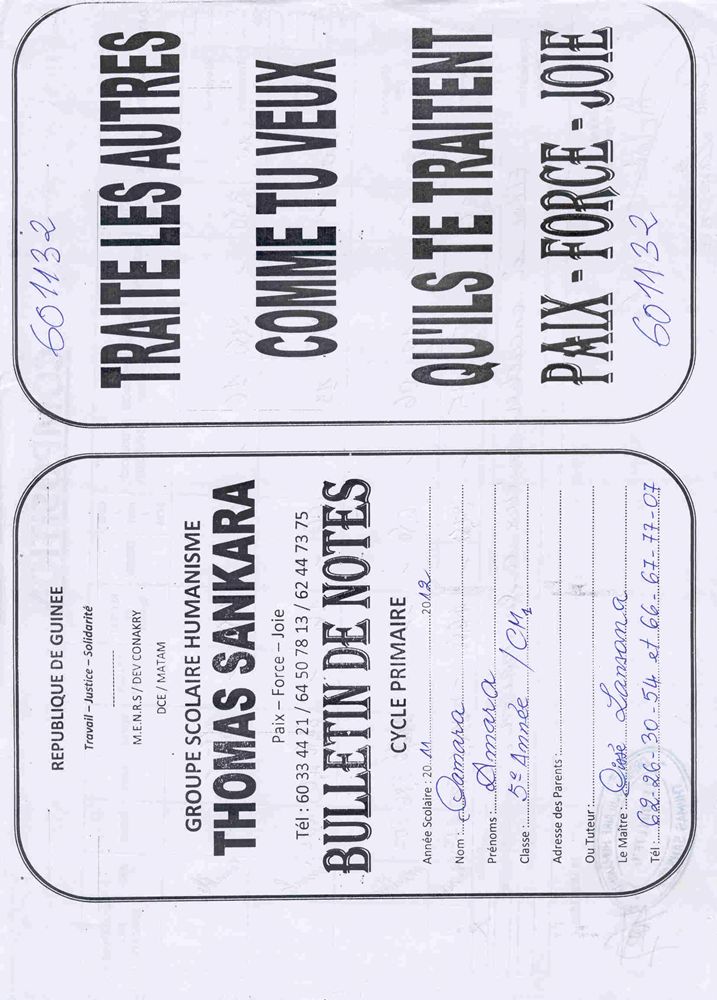 REPUBLIQUE DE GUINEE
Travail – Justice – Solidarité
M.E.N.R.S / DEV CONAKRY
DCE / MATAM
GROUPE SCOLAIRE HUMANISME
THOMAS SANKARA
Paix – Force – Joie
Tél : 60 33 44 21 / 64 50 78 13 / 62 44 73 75
BULLETIN DE NOTES
CYCLE PRIMAIRE
Année Scolaire : 20 11 2012
Nom : Camara
Prénoms : Amara
Classe : 5e Année / CM1
Adresse des Parents :
Ou Tuteur :
Le Maître : Cissé Lansana
Tél : 62-26-30-54 et 66-67-77-07
601132
TRAITE LES AUTRES
COMME TU VEUX
QU'ILS TE TRAITENT
PAIX - FORCE - JOIE
601132